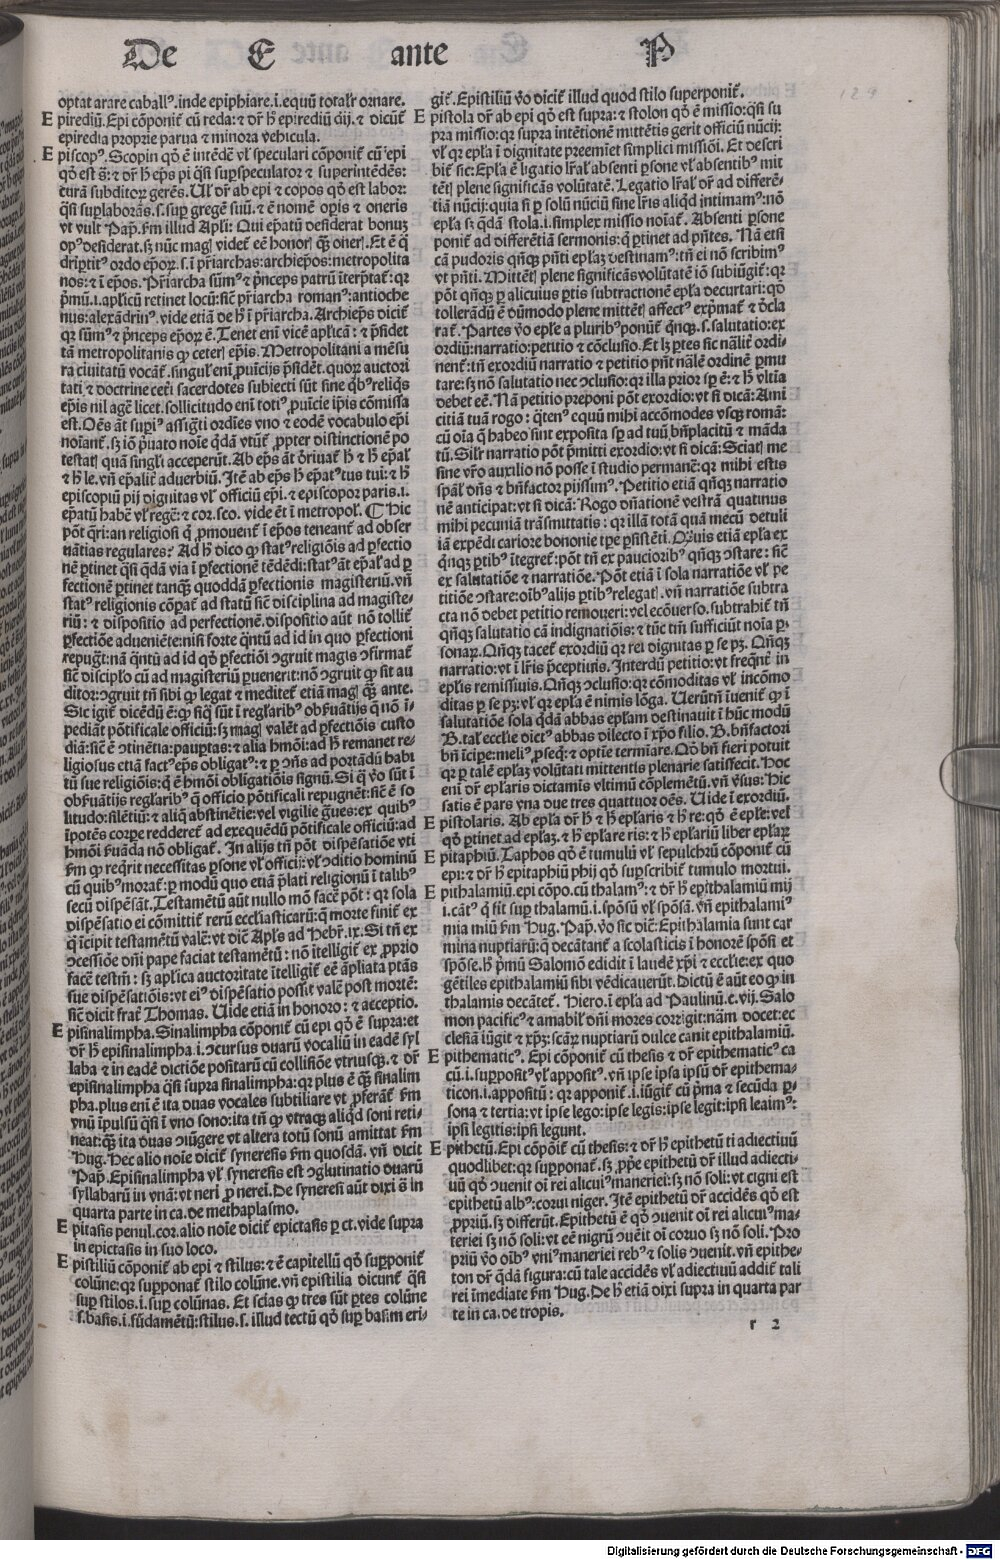 De E ante P
optat arare caballꝰ.inde epiphiare.i.equū totalr̄ ornare.
Epirediū.Epi cōponit̄ cū reda:⁊ dr̄ h̄ epirediū dij.⁊ dicūt̄
epiredia proprie parua ⁊ minora vehicula.
Episcopꝰ.Scopin qō ē intēdē vl̓ speculari cōponit̄ cū epi
qō est s̄:⁊ dr̄ h̄ ep̄s pi q̄si suꝑspeculator ⁊ superintēdēs:
curā subditoꝝ gerēs.Ul̓ dr̄ ab epi ⁊ copos qō est labor:
q̄si suꝑlaborās.s.suꝑ gregē suū.⁊ ē nomē oꝑis ⁊ oneris
vt vult Pap̄.fm illud Apl̓i: Qui ep̄atū desiderat bonuꝫ
opꝰ desiderat.sꝫ nūc magꝭ videt̄ eē honorꝭ q̄ꝫ onerꝭ.Et ē q̄
dripti꞉ꝰ ordo ep̄oꝝ.s.ī pr̄iarchas:archiep̄os:metropolita
nos:⁊ ī ep̄os.Pr̄iarcha sūmꝰ ⁊ p̄nceps patrū īterp̄tat̄:qꝛ
p̄mū.i.apl̓icū retinet locū:sic̄ pr̄iarcha romanꝰ:antioche
nus:alexādrinꝰ.vide etiā de h̄ ī pr̄iarcha.Archiep̄s dicit̄
qꝛ sūmꝰ ⁊ p̄nceps ep̄oꝝ ē.Tenet eni vicē apl̓icā:⁊ p̄sidet
tā metropolitanis ꝙ ceterꝭ ep̄is.Metropolitani a mēsu
ra ciuitatū vocāt̄.singul̓ eni ꝓuīcijs p̄sidēt.quoꝝ auctori
tati ⁊ doctrine cet̓i sacerdotes subiecti sūt sine q̄bꝰ reliq̄s
ep̄is nil agē licet.sollicitudo eni totiꝰ ꝓuīcie ip̄is cōmissa
est.Oēs āt supiꝰ assiḡti ordīes vno ⁊ eodē vocabulo ep̄i
noīant̄.sꝫ iō p̄uato noīe q̄dā vtūt̄ ꝓpter distinctionē po
testatꝭ quā singl̓i acceperūt.Ab ep̄s āt ōriuat̄ h̄ ⁊ h̄ ep̄al̓
⁊ h̄ le.vn̄ ep̄alit̄ aduerbiū.Itē ab ep̄s h̄ ep̄atꝰtus tui:⁊ h̄
episcopiū pij dignitas vl̓ officiū ep̄i.⁊ episcopor paris.i.
ep̄atū habē vl̓ regē:⁊ cor.sco.vide ēt ī metropol̓.¶ Hic
pōt q̄ri:an religiosi q̄ ꝓmouent̄ ī ep̄os teneant̄ ad obser
uātias regulares? Ad h̄ dico ꝙ statꝰ religiōis ad ꝑfectio
nē ꝑtinet q̄si q̄dā via ī ꝑfectionē tēdēdi:statꝰ āt ep̄al̓ ad ꝑ
fectionē ꝑtinet tanq̄ꝫ quoddā ꝑfectionis magisteriū.vn̄
statꝰ religionis cōꝑat̄ ad statū sic̄ disciplina ad magiste-
riū:⁊ dispositio ad perfectionē.dispositio aūt nō tollit̄
ꝑfectiōe adueniēte:nisi forte q̄ntū ad id in quo ꝑfectioni
repuḡt:nā q̄ntū ad id qō ꝑfectiōi ↄgruit magis ↄfirmat̄
sic̄ discipl̓o cū ad magisteriū ꝑuenerit:nō ↄgruit ꝙ sit au
ditor:ↄgruit tn̄ sibi ꝙ legat ⁊ meditet̄ etiā magꝭ q̄ꝫ ante.
Sic igit̄ dicēdū ē:ꝙ siq̄ sūt ī regl̓aribꝰ obſuātijs q̄ nō ī-
pediāt pōtificale officiū:sꝫ magꝭ valēt ad ꝑfectiōis custo
diā:sic̄ ē ↄtinētia:pauꝑtas:⁊ alia hmōi:ad h̄ remanet re-
ligiosus etiā factꝰ ep̄s obligatꝰ:⁊ ꝑ ↄn̄s ad portādū habi
tū sue religiōis:q̄ ē hmōi obligatiōis signū.Si q̄ v̄o sūt ī
obſuātijs regl̓aribꝰ q̄ officio pōtificali repugnēt:sic̄ ē so
litudo:silētiū:⁊ aliq̄ abstinētie:vel vigilie g̓ues:ex quibꝰ
īpotēs corꝑe redderet̄ ad exequēdū pōtificale officiū:ad
hmōi ſuāda nō obligat̄.In alijs tn̄ pōt dispēsatiōe vti
fm ꝙ req̄rit necessitas ꝑsone vl̓ officij:vl̓ ↄditio hominū
cū quibꝰ morat̄:ꝑ modū quo etiā p̄lati religionū ī talibꝰ
secū dispēsāt.Testamētū aūt nullo mō facē pōt:qꝛ sola
dispēsatio ei cōmittit̄ rerū eccl̓iasticarū:q̄ morte finit̄ ex
q̄ īcipit testamētū valē:vt dic̄ Apl̓s ad Hebr̄.ix.Si tn̄ ex
ↄcessiōe dn̄i pape faciat testamētū:nō ītelligit̄ ex ꝓprio
facē testm̄:sꝫ apl̓ica auctoritate ītelligit̄ eē āpliata ptās
sue dispēsatiōis:vt eiꝰ dispēsatio possit valē post mortē:
sic̄ dicit frat̄ Thomas.Uide etiā in honoro:⁊ acceptio.
Episinalimpha.Sinalimpha cōponit̄ cū epi qō ē supra:et
dr̄ h̄ episinalimpha.i.ↄcursus duarū vocaliū in eadē syl
laba ⁊ in eadē dictiōe positarū cū collisiōe vtriusqꝫ.⁊ dr̄
episinalimpha q̄si supra sinalimpha:qꝛ plus ē q̄ꝫ sinalim
pha.plus eni ē ita duas vocales subtiliare vt ꝓferāt̄ fm
vnū īpulsū q̄si ī vno sono:ita tn̄ ꝙ vtraqꝫ aliqd soni reti-
neat:q̄ꝫ ita duas ↄiūgere vt altera totū sonū amittat fm
Hug.Hec alio noīe dicit̄ syneresis fm quosdā.vn̄ dicit
Pap̄.Episinalimpha vl̓ syneresis est ↄglutinatio duarū
syllabarū in vnā:vt neri ꝓ nerei.De syneresi aūt dixi s̄ in
quarta parte in ca.de methaplasmo.
Epitasis penul.cor.alio noīe dicit̄ epictasis ꝑ ct.vide supra
in epictasis in suo loco.
Epistiliū cōponit̄ ab epi ⁊ stilus:⁊ ē capitellū qō suꝑponit̄
colūne:qꝛ suꝑponat̄ stilo colūne.vn̄ epistilia dicunt̄ q̄si
suꝑ stilos.i.suꝑ colūnas.Et scias ꝙ tres sūt ꝑtes colūne
s.basis.i.fūdamētū:stilus.s.illud tectū qō suꝑ basim eri-
git̄.Epistiliū v̄o dicit̄ illud quod stilo superponit̄.
Epistola dr̄ ab epi qō est supra:⁊ stolon qō ē missio:q̄si su
pra missio:qꝛ supra intētionē mittētis gerit officiū nūcij:
vl̓ qꝛ ep̄l̓a ī dignitate preemīet simplici missiōi.Et descri
bit̄ sic:Ep̄l̓a ē l̓igatio lr̄al̓ absenti ꝑsone vl̓ absentibꝰ mit
tētꝭ plene significās volūtatē.Legatio lr̄al̓ dr̄ ad differē-
tiā nūcij:quia si ꝑ solū nūciū sine lr̄is aliqd intimamꝰ:nō
ep̄l̓a sꝫ q̄dā stola.i.simplex missio noīat̄.Absenti ꝑsone
ponit̄ ad differētiā sermonis:q̄ ꝑtinet ad pn̄tes.Nā etsi
cā pudoris qn̄qꝫ pn̄ti ep̄l̓aꝫ destinamꝰ:tn̄ ei nō scribimꝰ
vt pn̄ti.Mittētꝭ plene significās volūtatē iō subiūgit̄:qꝛ
pōt qn̄qꝫ ꝑ alicuius ꝑtis subtractionē ep̄l̓a decurtari:qō
tollerādū ē dūmodo plene mittētꝭ affectꝰ exp̄mat̄ ⁊ ↄcla
rat̄.Partes v̄o ep̄l̓e a pluribꝰ ponūt̄ qn̄qꝫ.s.salutatio:ex
ordiū:narratio:petitio ⁊ cōclusio.Et lꝫ ꝑtes sic nāl̓it̄ ordi-
nent̄:tn̄ exordiū narratio ⁊ petitio pn̄t nāl̓ē ordinē ꝑmu
tare:sꝫ nō salutatio nec ↄclusio:qꝛ illa prior sꝑ ē:⁊ h̄ vl̓tīa
debet eē.Nā petitio preponi pōt exordio:vt si dicā:Ami
citiā tuā rogo:q̄tenꝰ equū mihi accōmodes vsqꝫ romā:
cū oīa q̄ habeo sint exposita sꝑ ad tuū bn̄placitū ⁊ māda
tū.Silr̄ narratio pōt p̄mitti exordio:vt si dicā:Sciatꝭ me
sine vr̄o auxilio nō posse ī studio permanē:qꝛ mihi estis
sp̄al̓ dn̄s ⁊ bn̄factor pijssimꝰ.Petitio etiā qn̄qꝫ narratio
nē anticipat:vt si dicā:Rogo dn̄ationē vestrā quatinus
mihi pecuniā trāsmittatis:qꝛ illā totā quā mecū detuli
iā expēdi cariore bononie tꝑe ꝑsistēti.Q̄uis etiā ep̄l̓a ex
qn̄qꝫ ꝑtibꝰ ītegret̄:pōt tn̄ ex pauciorībꝰ qn̄qꝫ ↄstare:sic̄
ex salutatiōe ⁊ narratiōe.Pōt etiā ī sola narratiōe vl̓ pe
titiōe ↄstare:oībꝰ alijs ꝑtibꝰ relegatꝭ.vn̄ narratiōe subtra
cta nō debet petitio remoueri:vel ecōuerso.subtrahit̄ tn̄
qn̄qꝫ salutatio cā indignatiōis:⁊ tūc tm̄ sufficiūt noīa ꝑ-
sonaꝝ.Qn̄qꝫ tacet̄ exordiū qꝛ rei dignitas ꝑ se pꝫ.Qn̄qꝫ
narratio:vt ī lr̄is p̄ceptiuis.Interdū petitio:vt freq̄nt̄ in
ep̄l̓is remissiuis.Qn̄qꝫ ↄclusio:qꝛ cōmoditas vl̓ incōmo
ditas ꝑ se pꝫ:vl̓ qꝛ ep̄l̓a ē nimis lōga.Uerūtn̄ īuenit̄ ꝙ ī
salutatiōe sola q̄dā abbas ep̄l̓am destinauit ī hūc modū
B.tal̓ eccl̓ie dictꝰ abbas dilecto ī xp̄o filio.B.bn̄factori
bn̄ īcipe:meliꝰ ꝓseq̄:⁊ optīe termīare.Qō bn̄ fieri potuit
qꝛ ꝑ talē ep̄l̓aꝫ volūtati mittentis plenarie satisfecit.Hoc
eni dr̄ ep̄l̓aris dictamis vltimū cōplemētū.vn̄ v̄sus:Hic
satis ē pars vna due tres quattuor oēs.Uide ī exordiū.
Epistolaris.Ab ep̄l̓a dr̄ h̄ ⁊ h̄ ep̄l̓aris ⁊ h̄ re:qō ē ep̄l̓e:vel
qō ꝑtinet ad ep̄l̓aꝫ.⁊ h̄ ep̄l̓are ris:⁊ h̄ ep̄l̓ariū liber ep̄l̓aꝝ
Epitaphiū.Taphos qō ē tumulū vl̓ sepulchrū cōponit̄ cū
epi:⁊ dr̄ h̄ epitaphiū phij qō suꝑscribit̄ tumulo mortui.
Epithalamiū.epi cōpo.cū thalamꝰ:⁊ dr̄ h̄ epithalamiū mij
i.cātꝰ q̄ fit suꝑ thalamū.i.spōsū vl̓ spōsā.vn̄ epithalamiꝰ
mia miū fm Hug.Pap̄.v̄o sic dic̄:Epithalamia sunt car
mina nuptiarū:q̄ decātant̄ a scolasticis ī honorē spōsi et
spōse.h̄ p̄mū Salomō edidit ī laudē xp̄i ⁊ eccl̓ie:ex quo
gētiles epithalamiū sibi vēdicauerūt.Dictū ē aūt eo ꝙ in
thalamis decātet̄.Hiero.ī ep̄l̓a ad Paulinū.c.vij.Salo
mon pacificꝰ ⁊ amabil̓ dn̄i mores corrigit:nām docet:ec
clesiā iūgit ⁊ xp̄ꝫ:scāꝝ nuptiarū dulce canit epithalamiū.
Epithematicꝰ.Epi cōponit̄ cū thesis ⁊ dr̄ epithematicꝰ ca
cū.i.suꝑpositꝰ vl̓ appositꝰ.vn̄ ipse ipsa ipsū dr̄ epithema-
ticon.i.appositū:qꝛ apponit̄.i.iūgit̄ cū p̄ma ⁊ secūda ꝑ-
sona ⁊ tertia:vt ipse lego:ipse legis:ipse legit:ipsi legimꝰ:
ipsi legitis:ipsi legunt.
Epithetū.Epi cōpōit̄ cū thesis:⁊ dr̄ h̄ epithetū ti adiectiuū
quodlibet:qꝛ suꝑponat̄.sꝫ ꝓpe epithetū dr̄ illud adiecti-
uū qō ↄuenit oī rei alicuiꝰ maneriei:sꝫ nō soli:vt cigni est
epithetū albꝰ:corui niger.Itē epithetū dr̄ accidēs qō est
ꝓpriū.sꝫ differūt.Epithetū ē qō ↄuenit oī rei alicuiꝰ ma-
teriei sꝫ nō soli:vt eē nigrū ↄuēit oī coruo sꝫ nō soli.Pro
priū v̄o oībꝰ vniꝰ maneriei rebꝰ ⁊ solis ↄuenit.vn̄ epithe-
ton dr̄ q̄dā figura:cū tale accidēs vl̓ adiectiuū addit̄ tali
rei īmediate fm Hug.De h̄ etiā dixi supra in quarta par
te in ca.de tropis.
r 2
129
Digitalisierung gefördert durch die Deutsche Forschungsgemeinschaft - DFG